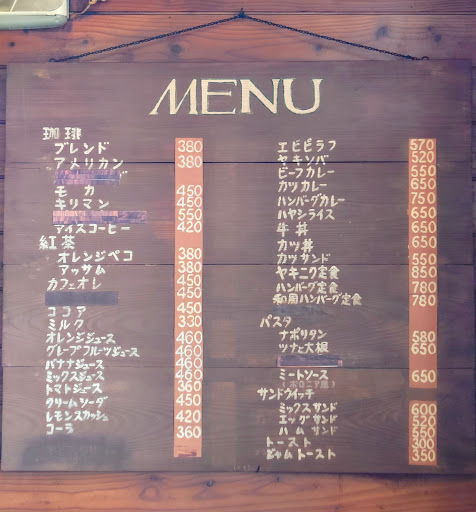 MENU
珈琲
ブレンド 380
アメリカン 380
モカ 450
キリマン 450
550
アイスコーヒー 420
紅茶
オレンジペコ 380
アッサム 380
カフェオレ 450
450
ココア 450
ミルク 330
オレンジジュース 460
グレープフルーツジュース 460
バナナジュース 460
ミックスジュース 460
トマトジュース 360
クリームソーダ 450
レモンスカッシュ 420
コーラ 360
エビピラフ 570
ヤキソバ 520
ビーフカレー 550
カツカレー 650
ハンバーグカレー 750
ハヤシライス 650
牛丼 650
カツ丼 650
カツサンド 550
ヤキニク定食 850
ハンバーグ定食 780
和風ハンバーグ定食 780
パスタ
ナポリタン 580
ツナと大根 650
ミートソース 650
(ボロニア風)
サンドウイッチ
ミックスサンド 600
エッグサンド 520
ハムサンド 550
トースト 300
ジャムトースト 350